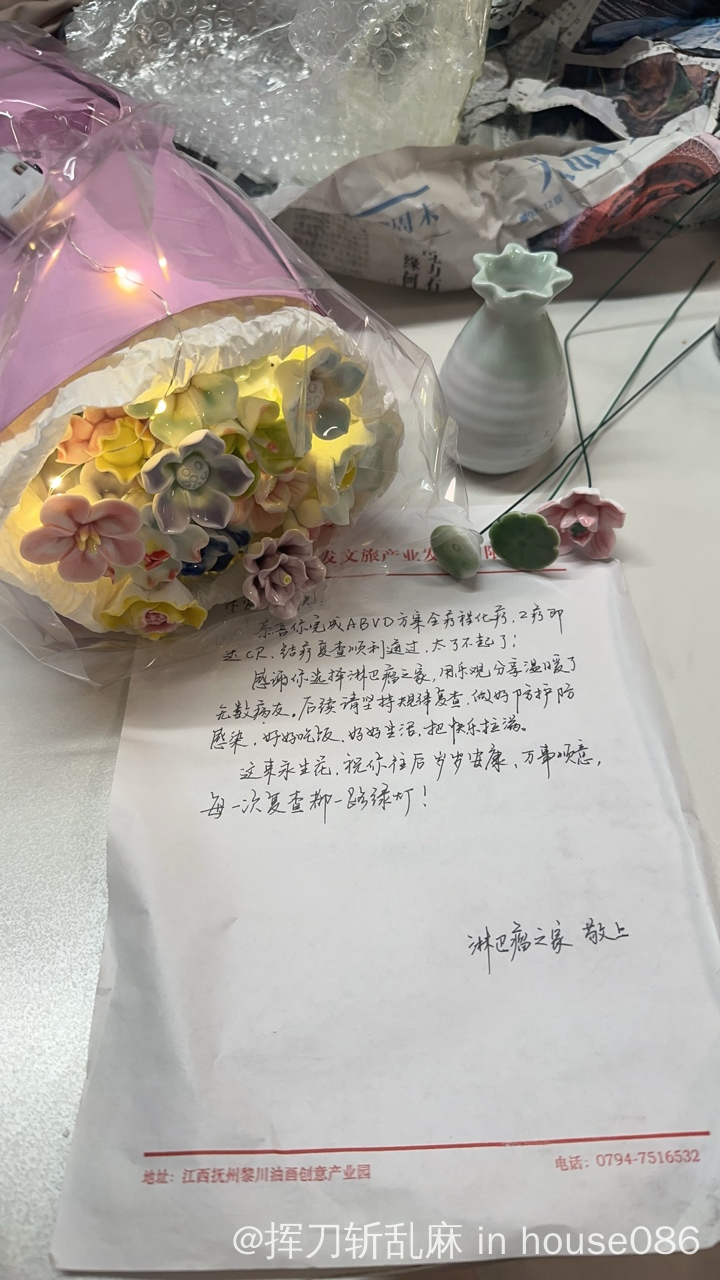 周末
缘何
发文旅产业发
恭喜你完成ABVD方案全疗程化疗，2疗即
达CR，结疗复查顺利通过，太了不起了！
感谢你选择淋巴瘤之家，用乐观分享温暖了
无数病友。后续请坚持规律复查，做好防护防
感染，好好吃饭、好好生活，把快乐拉满。
这束永生花，祝你往后岁岁安康、万事顺意，
每一次复查都一路绿灯！
淋巴瘤之家 敬上
地址：江西抚州黎川油画创意产业园
电话：0794-7516532
@挥刀斩乱麻 in house086